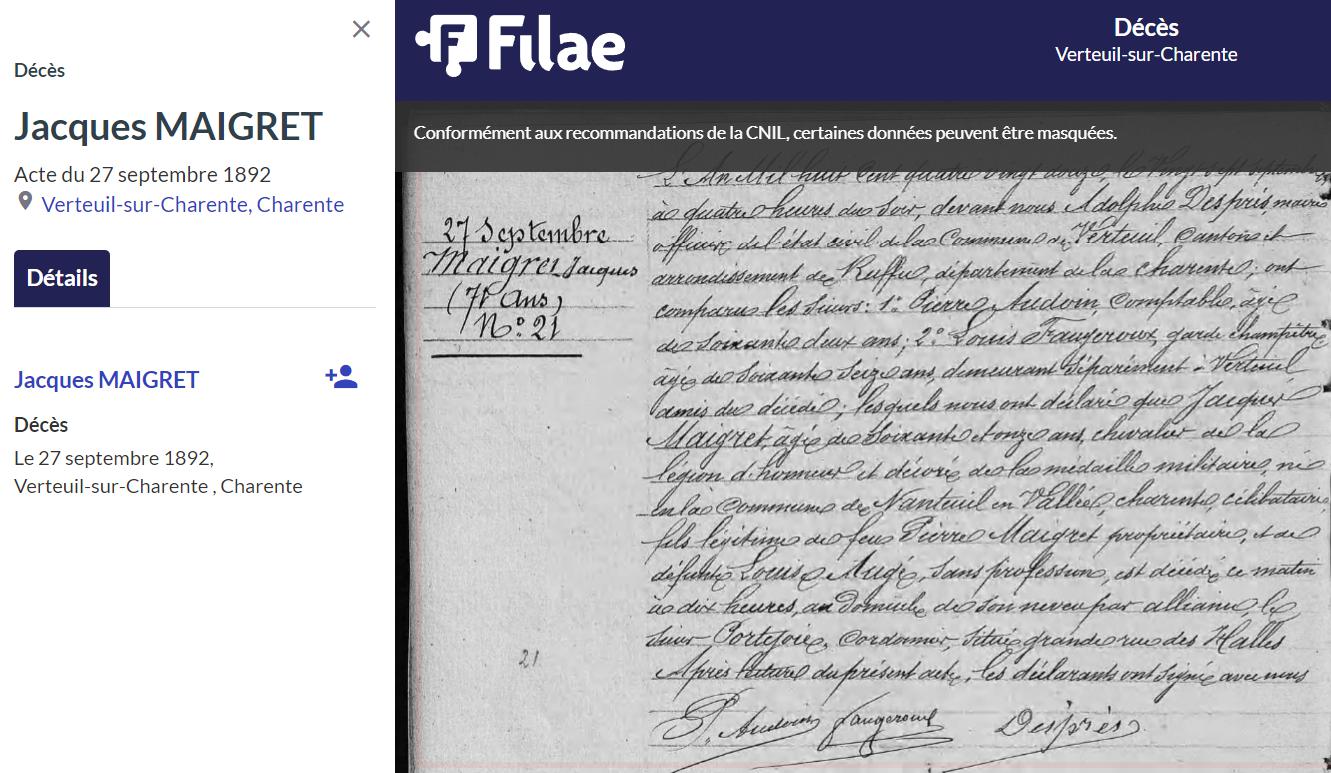 Décès
Jacques MAIGRET
Acte du 27 septembre 1892
Verteuil-sur-Charente, Charente
Détails
Jacques MAIGRET
Décès
Le 27 septembre 1892,
Verteuil-sur-Charente , Charente
Filae
Décès
Verteuil-sur-Charente
Conformément aux recommandations de la CNIL, certaines données peuvent être masquées.
27 Septembre
Maigret Jacques
(71 Ans)
N.° 21
21
L'An Mil huit Cent quatre vingt douze le Vingt sept septembre
à quatre heures du Soir, devant nous Adolphe Després, maire
officier de l'état civil de la Commune de Verteuil, Canton et
arrondissement de Ruffec, département de la charente; ont
comparu les sieurs: 1.° Pierre Audoin, Comptable, âgé
de soixante deux ans; 2.° Louis Faugeroux, garde champêtre
âgé de Soixante Seize ans, demeurant séparément à Verteuil
amis du décédé; lesquels nous ont déclaré que Jacques
Maigret, âgé de Soixante et onze ans, chevalier de la
légion d'honneur et décoré de la médaille militaire, né
en la Commune de Nanteuil en Vallée, charente, célibataire,
fils légitime de feu Pierre Maigret propriétaire, et de
défunte Louise Augé, sans profession, est décédé ce matin
à dix heures, au Domicile de son neveu par alliance, le
sieur Portejoie, Cordonnier, située grande rue des Halles
Après lecture du présent acte, les déclarants ont signé avec nous
P. Audoin Faugeroux Després